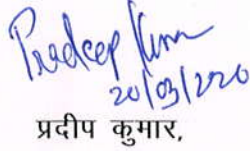 Pradeep Kumar
20/03/2020
प्रदीप कुमार,